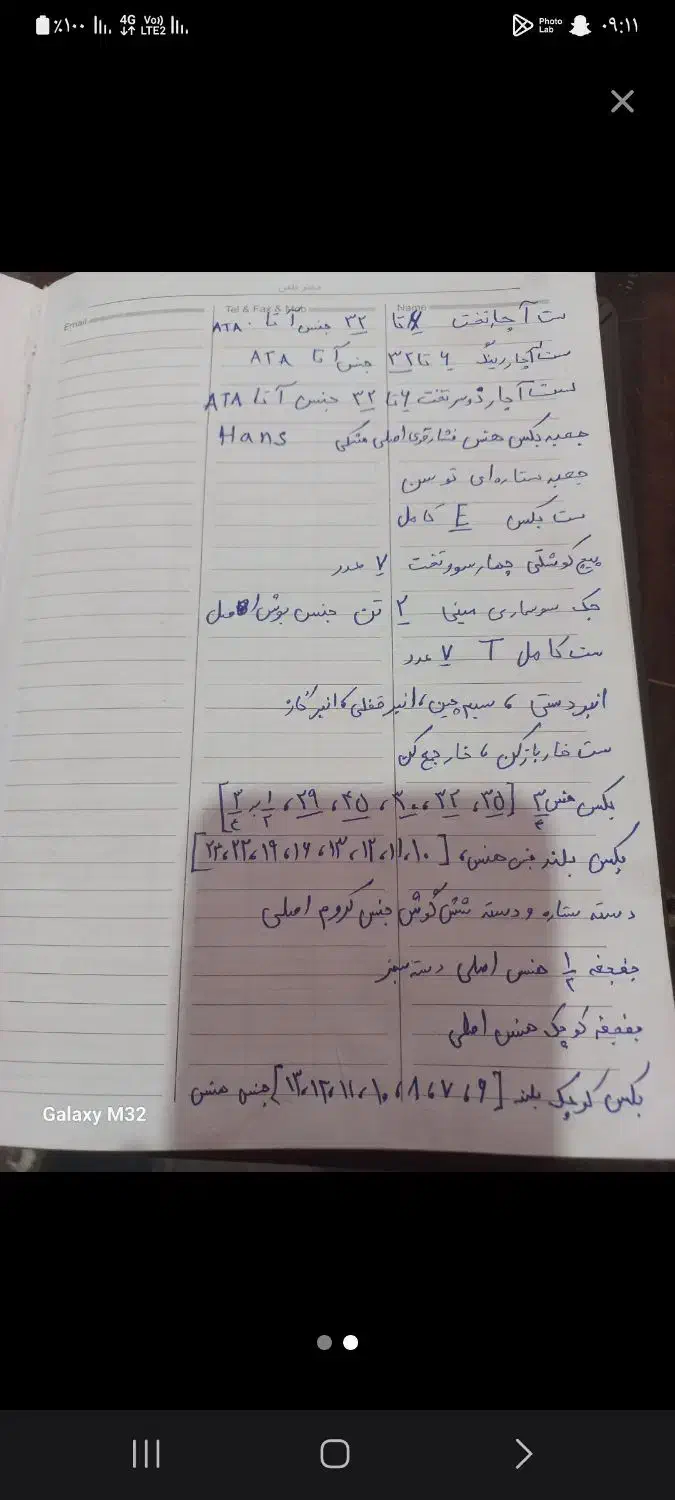 ٪۱۰۰ 4G Vo)) LTE2 Photo Lab ۰۹:۱۱
دفتر تلفن
Email Tel & Fax & Mob Name
ست آچار تخت تا ۳۲ جنس آتا ATA
ست آچار رینگ ۶ تا ۳۲ جنس آتا ATA
ست آچار دوسر تخت ۶ تا ۳۲ جنس آتا ATA
جعبه بکس هنس فشار قوی اصلی مشکی Hans
جعبه ستاره‌ای توسن
ست بکس E کامل
پیچ گوشتی چهارسو و تخت ۷ عدد
جک سوسماری مینی ۲ تن جنس بوش اصل
ست کامل T ۷ عدد
انبر دستی ، سیم چین ، انبر قفلی ، انبر گاز
ست خار باز کن ، خار جمع کن
بکس هنس ۳/۴ [۳۵ ، ۳۲ ، ۳۰ ، ۴۵ ، ۲۹ ، ۱/۲ به ۳/۴]
بکس بلند جنس هنس [۱۰ ، ۱۱ ، ۱۲ ، ۱۳ ، ۱۶ ، ۱۹ ، ۲۲ ، ۲۳]
دسته ستاره و دسته شش گوش جنس کروم اصلی
جغجغه ۱/۲ هنس اصلی دسته سبز
جغجغه کوچک هنس اصلی
بکس کوچک بلند [۶ ، ۷ ، ۸ ، ۱۰ ، ۱۱ ، ۱۲ ، ۱۳] جنس هنس
Galaxy M32